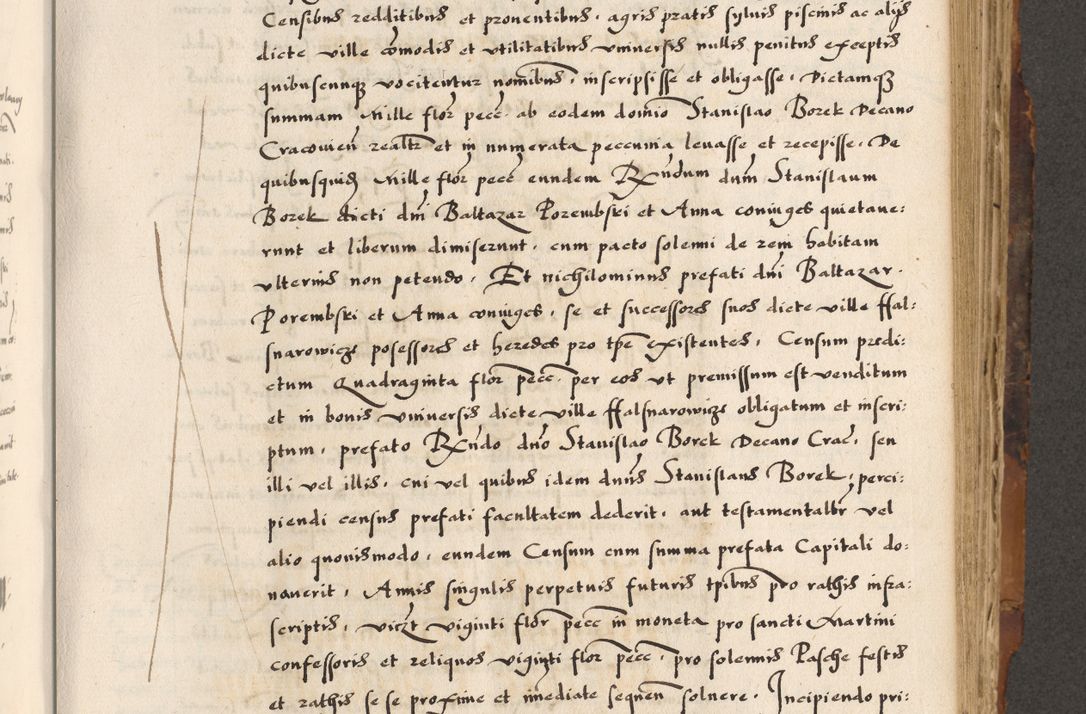 Censibus redditibus et proventibus, agris pratis sylvis piscinis ac alijs
dicte ville comodis et utilitatibus universis nullis penitus exceptis
quibuscunq vocitentur nomibus, inscripsisse et obligasse, Dictamq
summam Mille flor pecc ab eodem domino Stanislao Borek Decano
Cracovien realtr et in numerata peccunia levasse et recepisse, De
quibusquid Mille flor pecc eundem Rxndum dnm Stanislaum
Borek dicti dni Baltazar Porembski et Anna coniuges quietave:
runt et liberum dimiserunt, cum pacto solenni de rem habitam
ulterius non petendo, Et nichilominus prefati dni Baltazar
Porembski et Anna coniuges, se et successores suos dicte ville ffal:
snarowicze posessores et heredes pro tpe existentes, Censum predi:
ctum Quadraginta flor pecc, per eos ut premissum est venditum
et in bonis universis dicte ville ffalsnarowicze obligatum et inscri:
ptum, prefato Rxndo dno Stanislao Borek Decano Crac, seu
illi vel illis, cui vel quibus idem dnus Stanislaus Borek, perci:
piendi census prefati facultatem dederit, aut testamentaltr vel
alio quovismodo, eundem Censum cum summa prefata Capitali do:
naverit, Annis singulis perpetuis futuris tpibus pro rathis infra:
scriptis, viczt viginti flor pecc in moneta pro sancti Martini
confessoris et reliquos viginti flor pecc, pro solennis Pasche festis
et rathis se se proxime et imediate sequen solvere, Incipiendo pri: